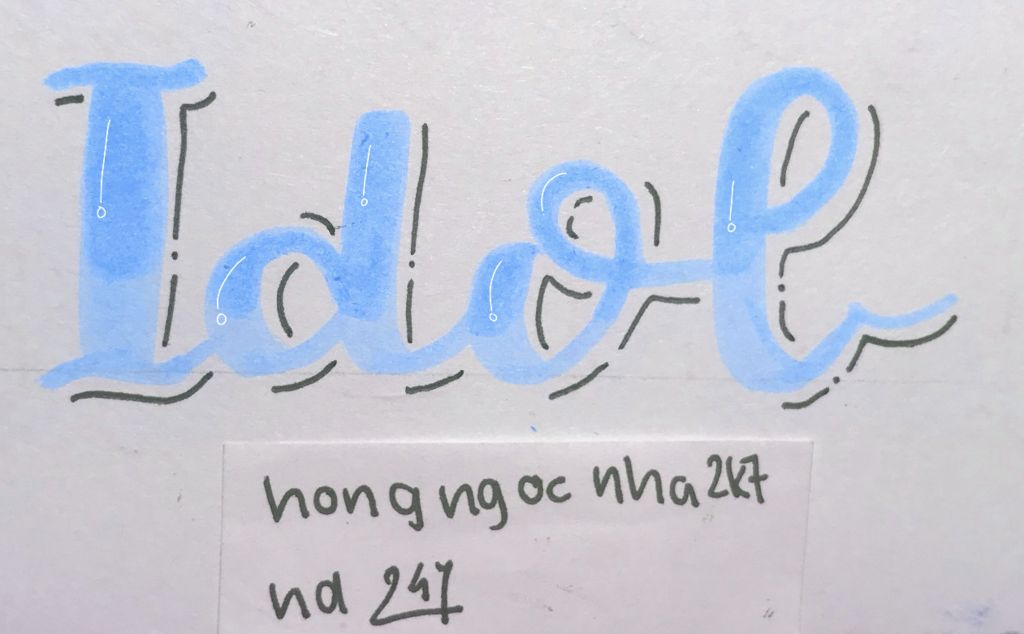 Idol
hong ngoc nha 2k7
nd 247